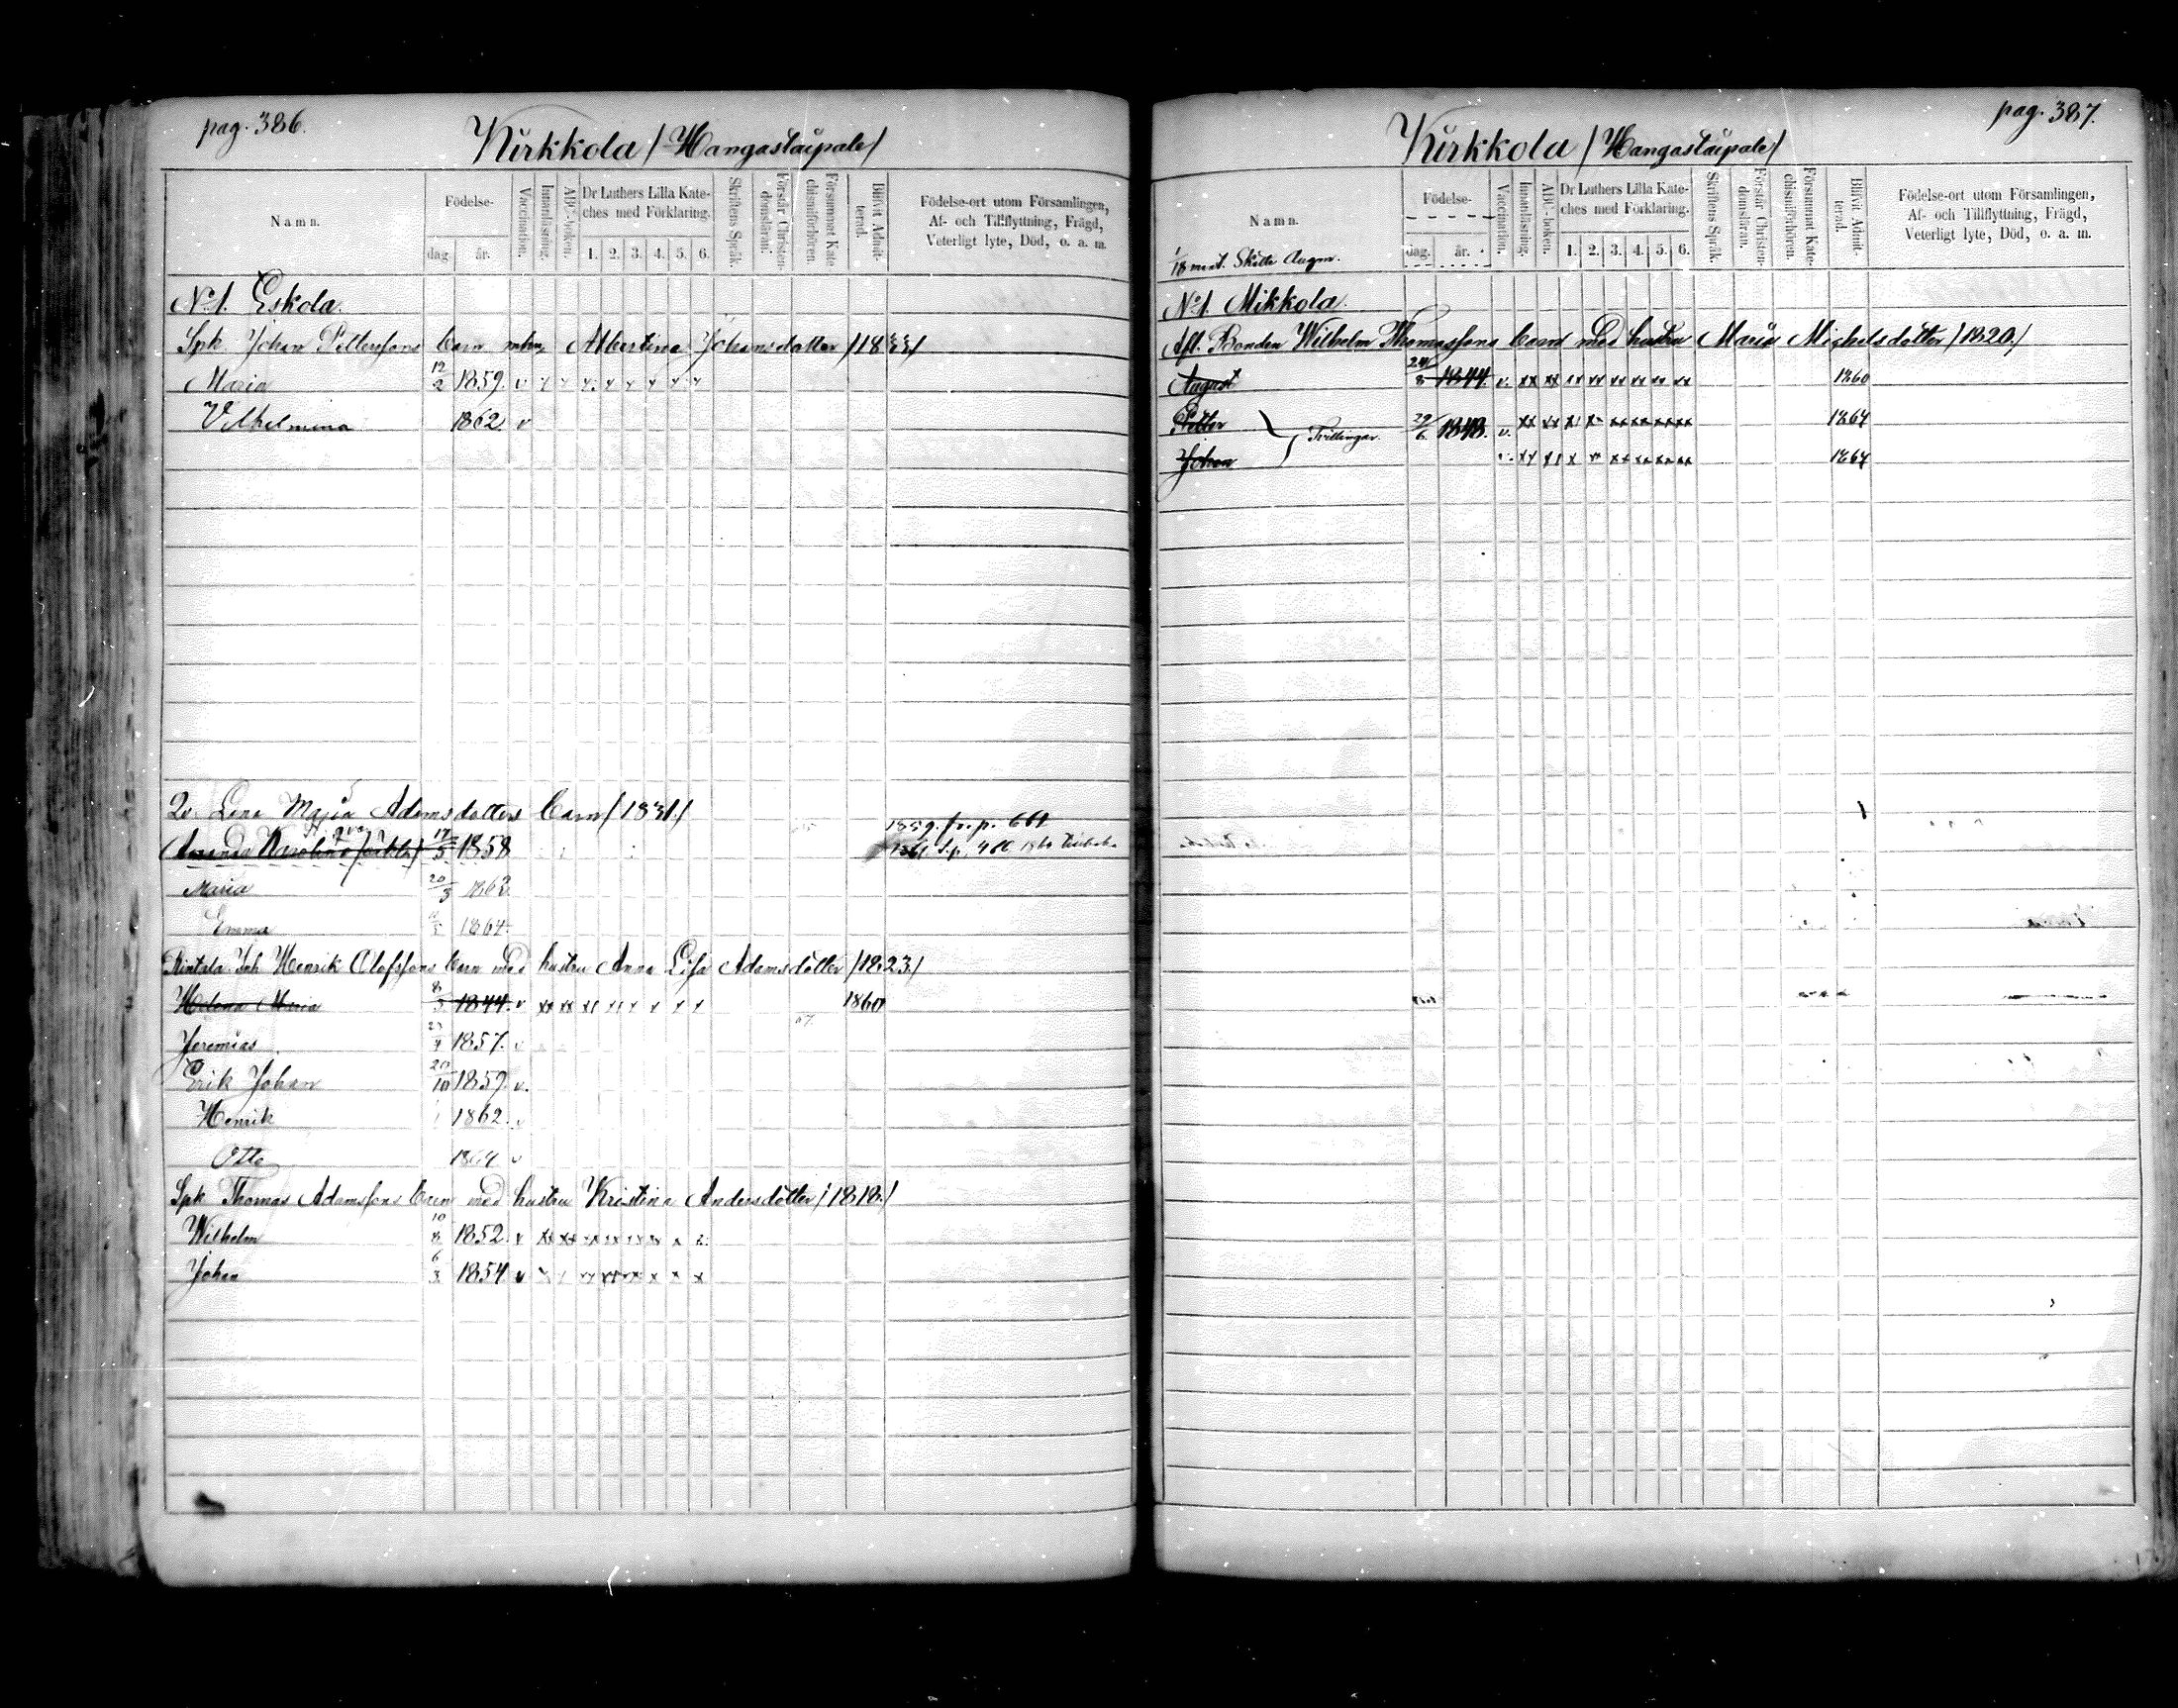 pag. 386.
Kirkkola /Hangastaipale/
Namn.
Födelse-
dag.
år.
Vaccination.
Innanläsning.
ABC-boken.
Dr Luthers Lilla Kate-
ches med Förklaring.
1. 2. 3. 4. 5. 6.
Skriftens Språk.
Förstår Christen-
domslaran.
Försummat Kate-
chismiförhören.
Blifvit Admit-
terad.
Födelse-ort utom Församlingen,
Af- och Tillflyttning, Frägd,
Veterligt lyte, Död, o. a. m.
No 1. Eskola.
Spk. Johan Pettersons barn Albertina Johansdotter /1833/
Maria 12/2 1859. v
Vilhelmina 1862. v
Lena Maja Adamsdotters barn /1831./
1859. fr. p. 661
Amanda Karolina 17/5 1858
Maria 20/3 1862
Emma 1864
Rintala Joh Henrik Olofssons barn med hustru Anna Lisa Adamsdotter /1823/
Helena Maria 8/5 1844. v xx xx 1860
Jeremias 1857. v
Erik Johan 20/10 1859. v.
Henrik 1862. v
Otto 1864 v
Spk Thomas Adamssons barn med hustru Kristina Andersdotter /1818./
Wilhelm 10/8 1852. v
Johan 6/3 1854 v
pag. 387.
Kirkkola /Hangastaipale/
Namn.
Födelse-
dag.
år.
Vaccination.
Innanläsning.
ABC-boken.
Dr Luthers Lilla Kate-
ches med Förklaring.
1. 2. 3. 4. 5. 6.
Skriftens Språk.
Förstår Christen-
domslaran.
Försummat Kate-
chismiförhören.
Blifvit Admit-
terad.
Födelse-ort utom Församlingen,
Af- och Tillflyttning, Frägd,
Veterligt lyte, Död, o. a. m.
1/18 mant. Skatte Augm.
No 1. Mikkola.
Afl. Bonden Wilhelm Thomassons barn med hustru Maria Michelsdotter /1820./
August 24/8 1844. v. xx xx xx xx xx xx xx xx 1860
Petter Tvillingar. 29/6 1848. v. 1864
Johan 1864